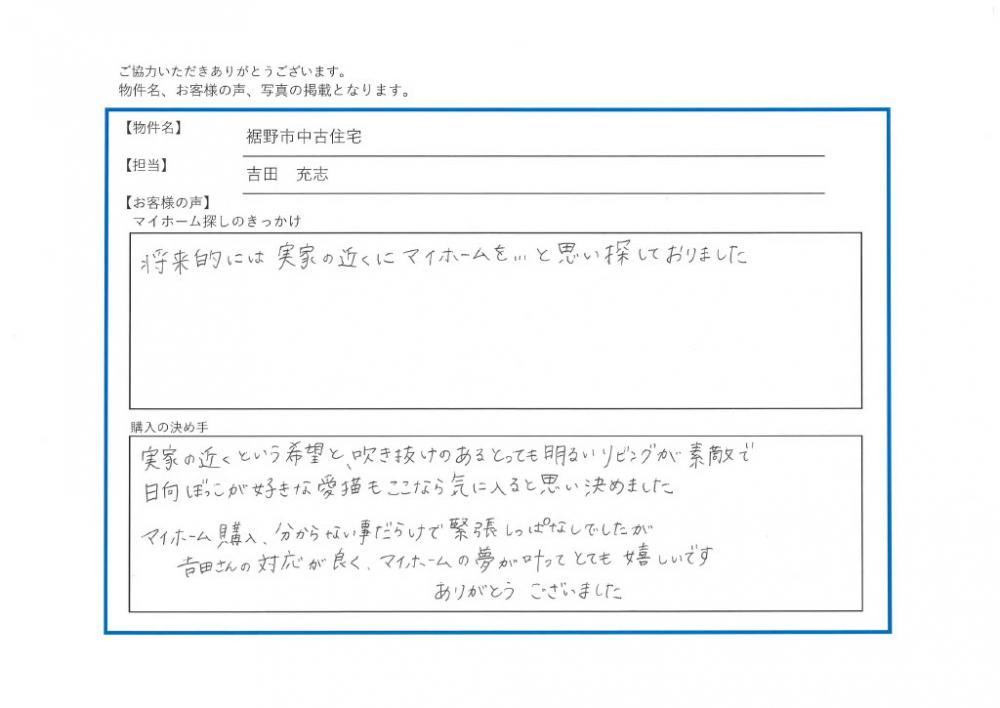 ご協力いただきありがとうございます。
物件名、お客様の声、写真の掲載となります。
【物件名】
裾野市中古住宅
【担当】
吉田　充志
【お客様の声】
マイホーム探しのきっかけ
将来的には実家の近くにマイホームを…と思い探しておりました
購入の決め手
実家の近くという希望と、吹き抜けのあるとっても明るいリビングが素敵で
日向ぼっこが好きな愛猫もここなら気に入ると思い決めました
マイホーム購入、分からない事だらけで緊張しっぱなしでしたが
吉田さんの対応が良く、マイホームの夢が叶ってとても嬉しいです
ありがとう ございました